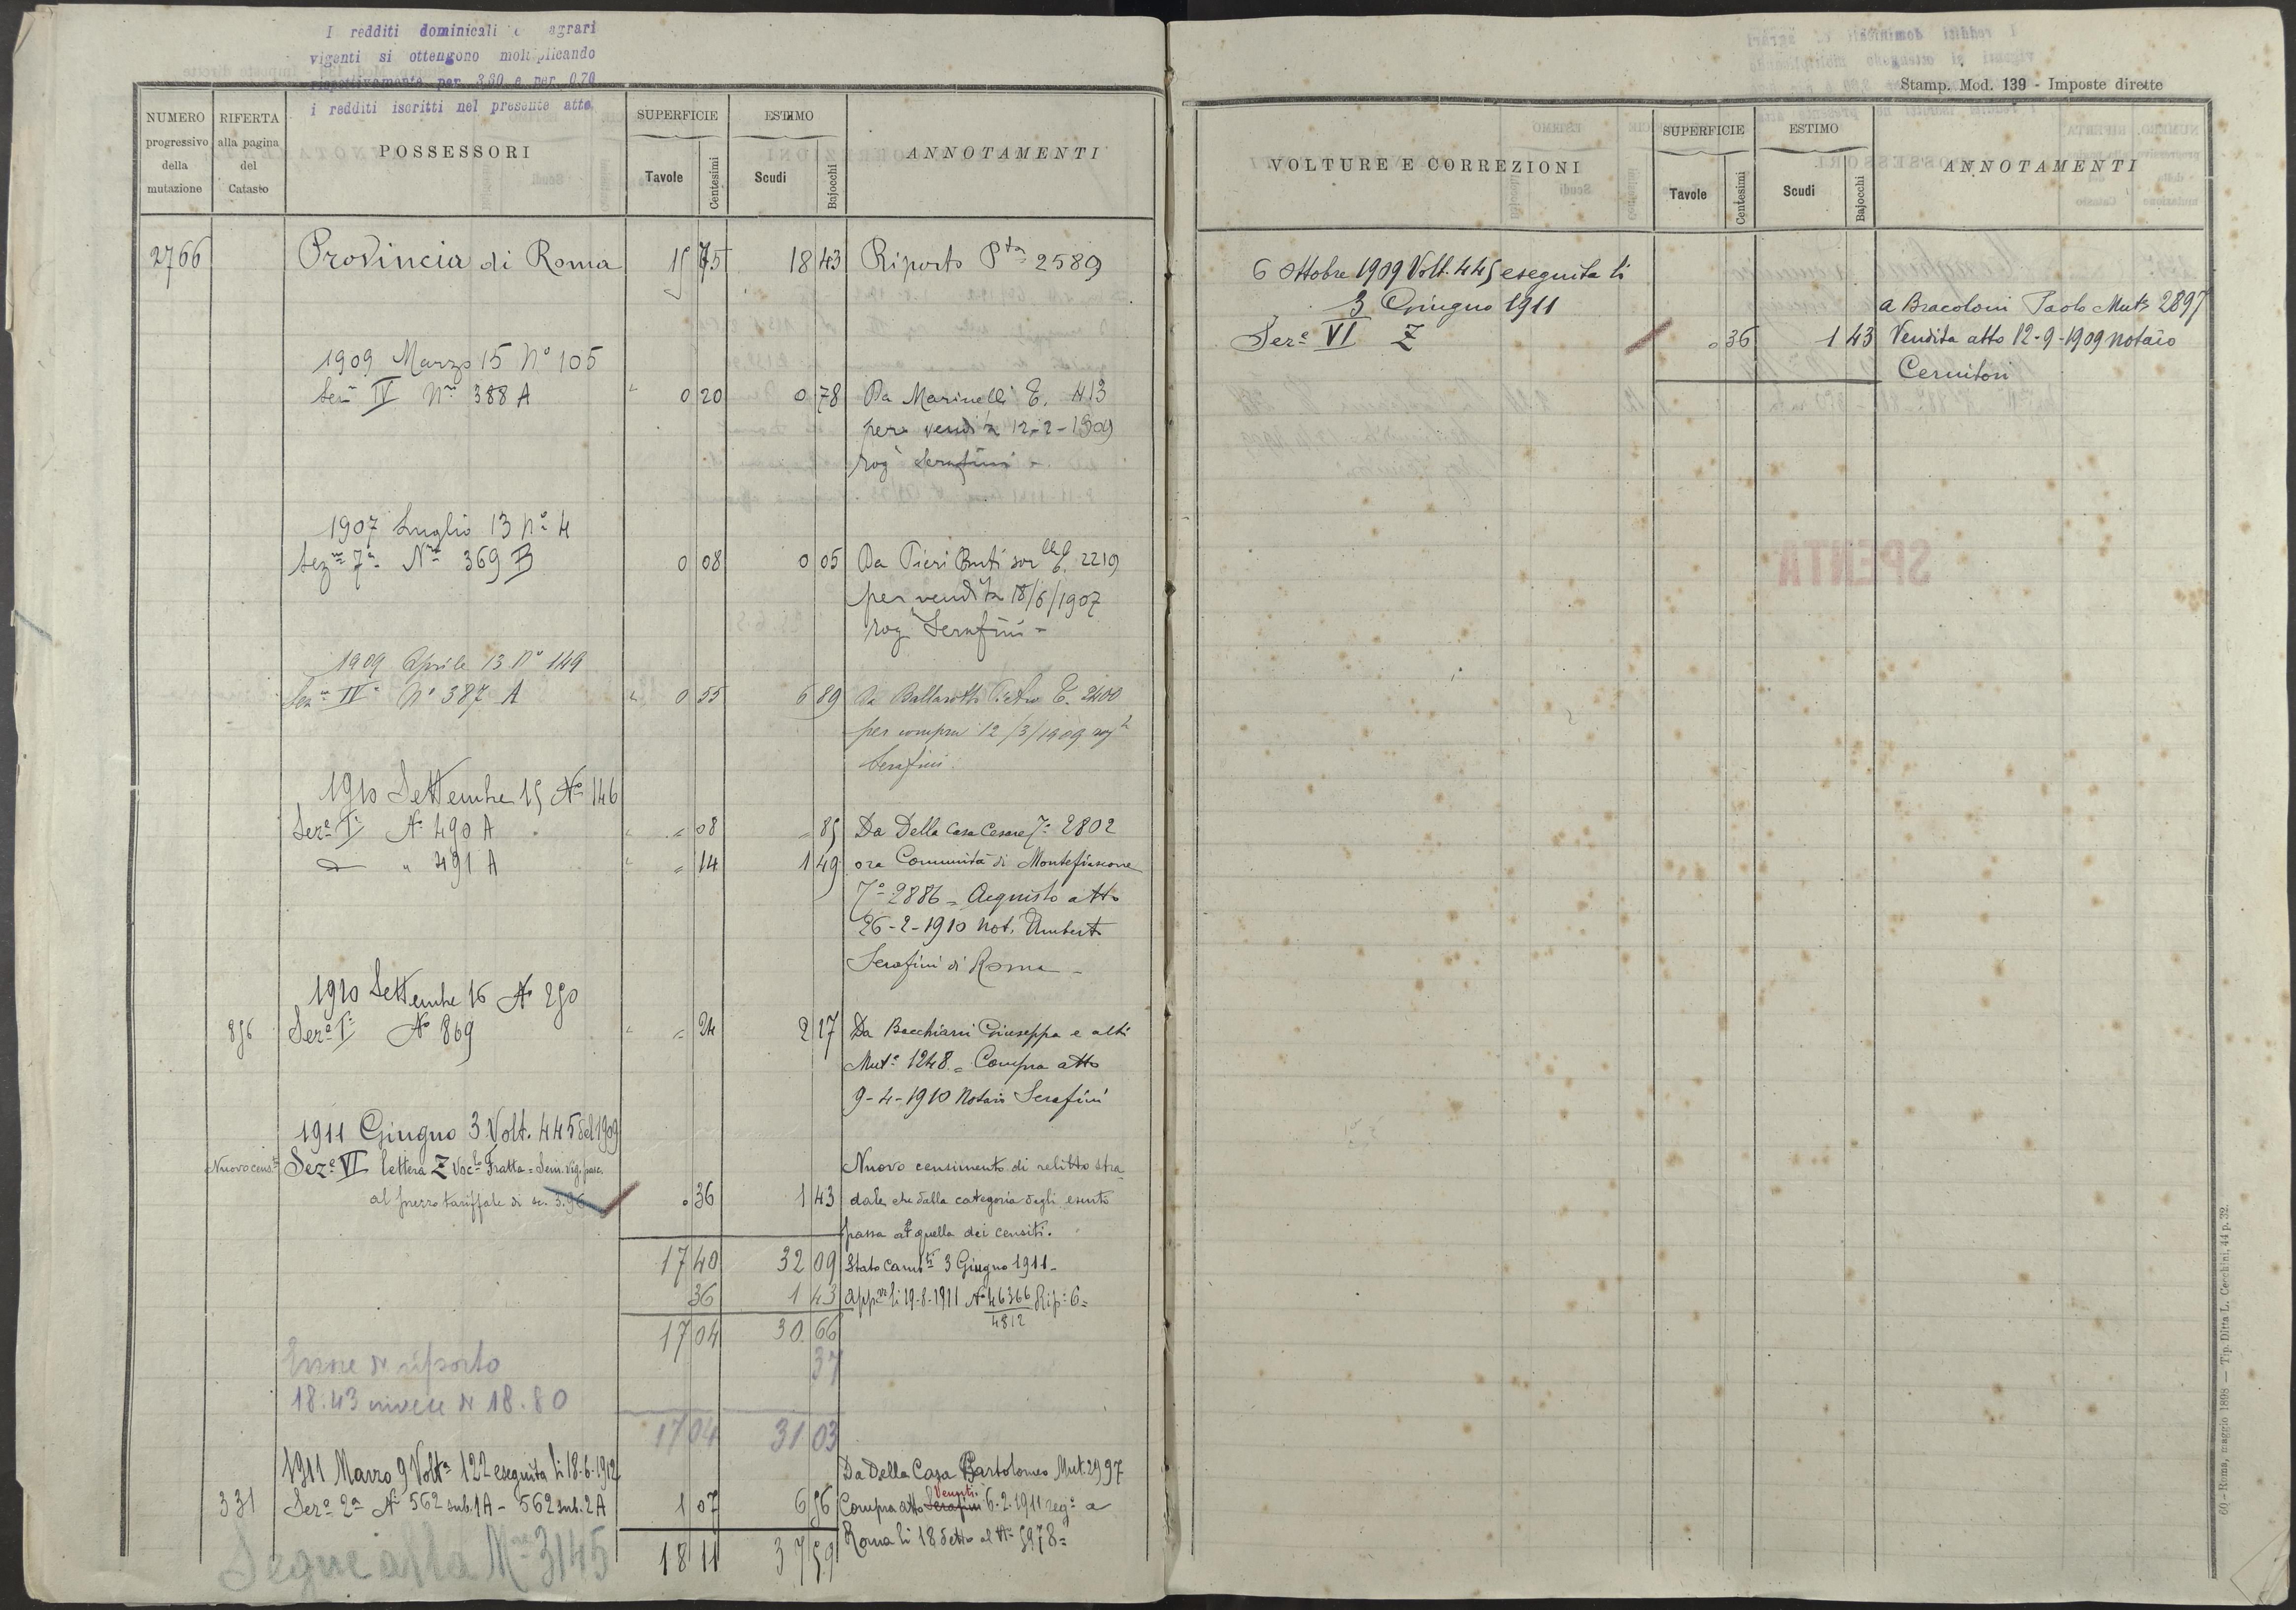 I redditi dominicali e agrari
vigenti si ottengono moltiplicando
rispettivamente per 3,30 e per 0,70
i redditi iscritti nel presente atto.
NUMERO progressivo della mutazione
RIFERTA alla pagina del Catasto
POSSESSORI
SUPERFICIE
Tavole
Centesimi
ESTIMO
Scudi
Bajocchi
ANNOTAMENTI
2766 Provincia di Roma 15 75 18 43 Riporto Pta 2589
1909 Marzo 15 No 105
Sezne IV No 388 A 0 20 0 78 Da Marinelli T. 413
per vendita 12-2-1909
rog Serafini
1907 Luglio 13 No 4
Sezne 7a No 369 B 0 08 0 05 Da Pieri Buti T. 2219
per vendita 18/6/1907
rog Serafini
1909 Aprile 13 No 149
Sezne IV No 387 A 0 55 6 89 Da Ballarotti Pietro T. 2400
per compra 12/3/1909 rog
Serafini
1910 Settembre 15 No 146
Seze I No 490 A 08 85 Da Della Casa Cesare 2802
" 491 A 14 1 49 ora Comunità di Montefiascone
2886 = Acquisto atto
26-2-1910 Not. Umberto
Serafini di Roma
1910 Settembre 16 No 250
856 Seze I No 869 24 2 17 Da Bacchiarri Giuseppa e altri
Muta 1248 = Compra atto
9-4-1910 Notaio Serafini
1911 Giugno 3 Volt. 445 del 1909
Nuovo censto Seze VI lettera Z Voclo Fratta = Sem. vig. pasc. Nuovo censimento di relitto stra
al prezzo tariffale di sc. 3.96 0 36 1 43 dale che dalla categoria degli esenti
passa a quella dei censiti.
17 40 32 09 Stato Camb.ti 3 Giugno 1911
36 1 43 appto li 19-8-1911 No 46366/4812 Rip. 6
17 04 30 66
Errore di riporto 37
18.43 invece di 18.80
17 04 31 03
1911 Marzo 9 Volta 122 eseguita li 18-6-1912 Da Della Casa Bartolomeo Mut. 2997
331 Seze 2a No 562 sub. 1A - 562 sub. 2A 1 07 6 56 Compra atto Serafini Venuti 6-2-1911 rega a
Roma li 18 detto al No 5978
18 11 37 59
Segue alla Mne 3145
Stamp. Mod. 139 - Imposte dirette
VOLTURE E CORREZIONI
SUPERFICIE
Tavole
Centesimi
ESTIMO
Scudi
Bajocchi
ANNOTAMENTI
6 Ottobre 1909 Volt. 445 eseguita li
3 Giugno 1911 a Bracoloni Paolo Muta 2897
Seze VI Z 0 36 1 43 Vendita atto 12-9-1909 notaio
Cernitori
SPENTA
60 - Roma, maggio 1898 — Tip. Ditta L. Cecchini, 44 p. 32.